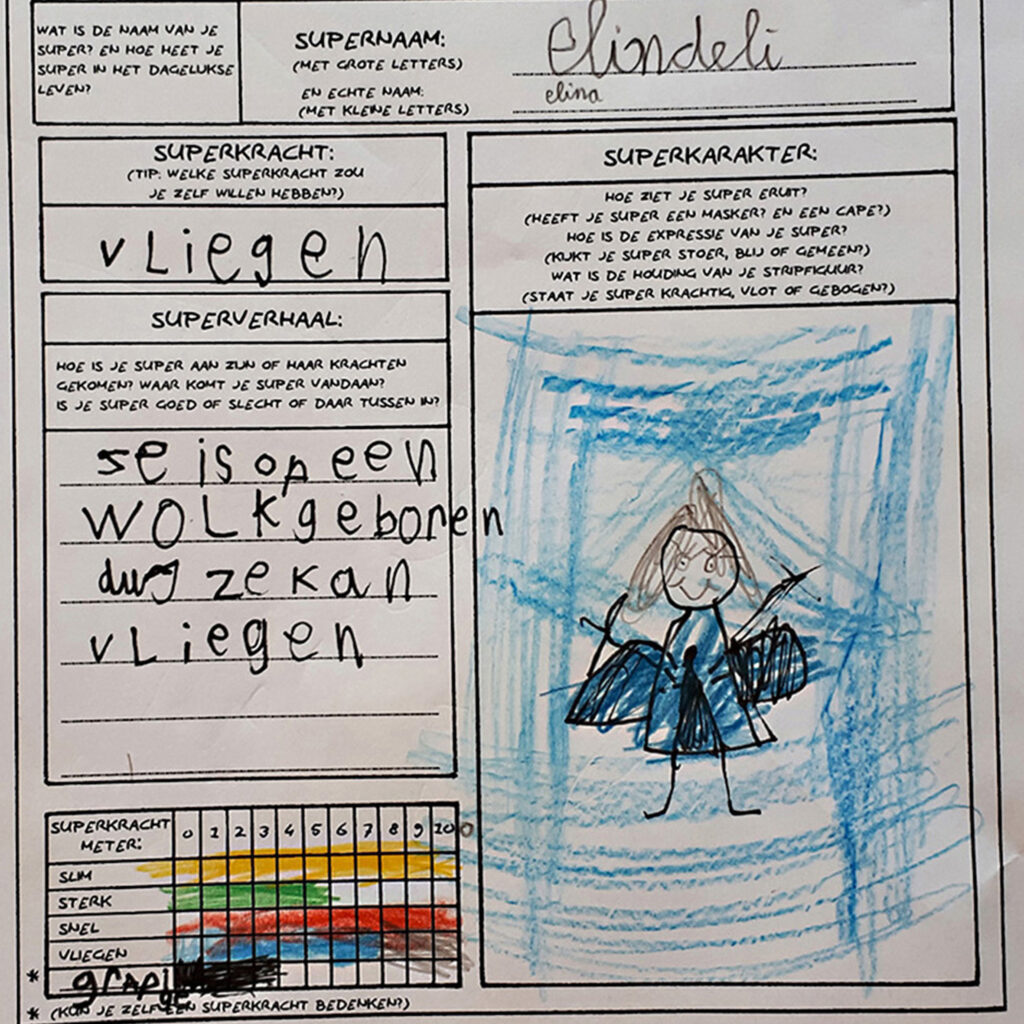 WAT IS DE NAAM VAN JE
SUPER? EN HOE HEET JE
SUPER IN HET DAGELIJKSE
LEVEN?
SUPERNAAM:
(MET GROTE LETTERS)
elindeli
EN ECHTE NAAM:
(MET KLEINE LETTERS)
elina
SUPERKRACHT:
(TIP: WELKE SUPERKRACHT ZOU
JE ZELF WILLEN HEBBEN?)
vLiegen
SUPERVERHAAL:
HOE IS JE SUPER AAN ZIJN OF HAAR KRACHTEN
GEKOMEN? WAAR KOMT JE SUPER VANDAAN?
IS JE SUPER GOED OF SLECHT OF DAAR TUSSEN IN?
se is op een
WOLK geboren
dus ze kan
vLiegen
SUPERKARAKTER:
HOE ZIET JE SUPER ERUIT?
(HEEFT JE SUPER EEN MASKER? EN EEN CAPE?)
HOE IS DE EXPRESSIE VAN JE SUPER?
(KIJKT JE SUPER STOER, BLIJ OF GEMEEN?)
WAT IS DE HOUDING VAN JE STRIPFIGUUR?
(STAAT JE SUPER KRACHTIG, VLOT OF GEBOGEN?)
SUPERKRACHT
METER:
0 1 2 3 4 5 6 7 8 9 10
SLIM
STERK
SNEL
VLIEGEN
* grapje
* (KUN JE ZELF EEN SUPERKRACHT BEDENKEN?)